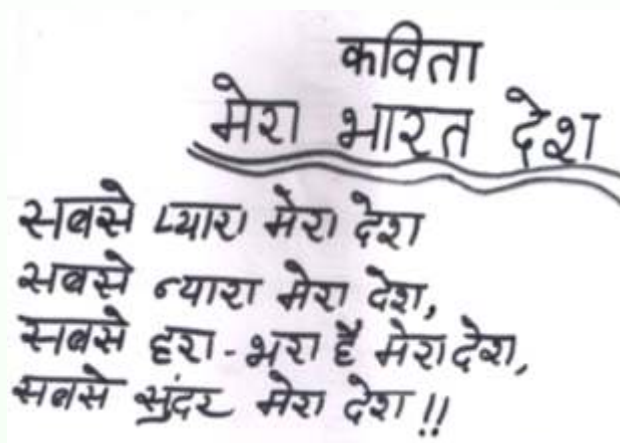 कविता
मेरा भारत देश
सबसे प्यारा मेरा देश
सबसे न्यारा मेरा देश,
सबसे हरा-भरा है मेरा देश,
सबसे सुंदर मेरा देश!!